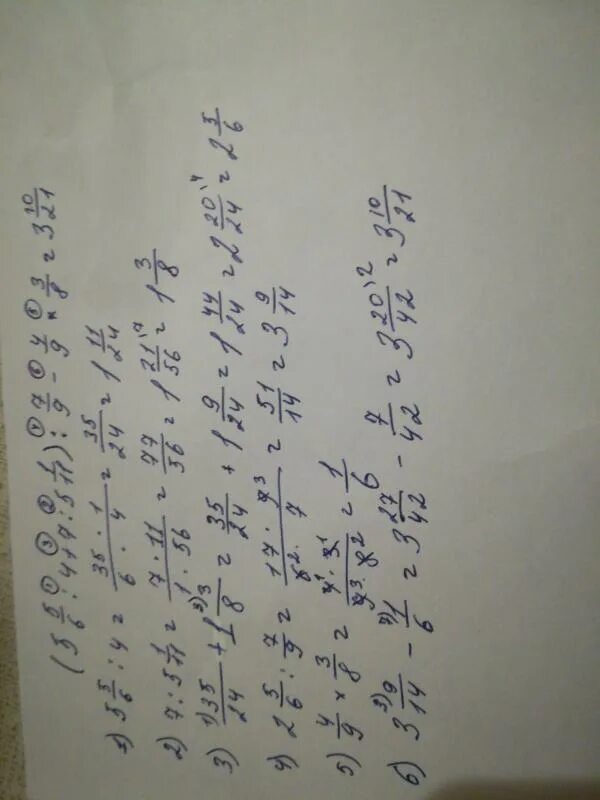 (5 5/6 : 4 + 7 : 5 1/11) : 7/9 - 4/9 × 3/8 = 3 10/21
1) 5 5/6 : 4 = 35 · 1 / 6 · 4 = 35/24 = 1 11/24
2) 7 : 5 1/11 = 7 · 11 / 1 · 56 = 77/56 = 1 21/56 = 1 3/8
3) 35/24 + 1 3/8 = 35/24 + 1 9/24 = 1 44/24 = 2 20/24 = 2 5/6
4) 2 5/6 : 7/9 = 17 · 9 / 6 · 7 = 51/14 = 3 9/14
5) 4/9 × 3/8 = 4 · 3 / 9 · 8 = 1/6
6) 3 9/14 - 1/6 = 3 27/42 - 7/42 = 3 20/42 = 3 10/21